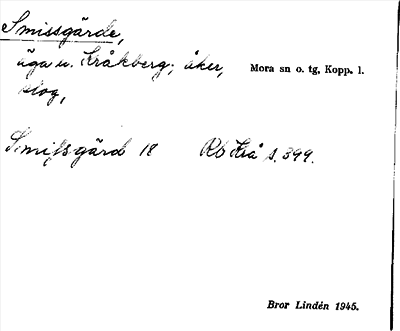 Smissgärde,
äga u. Kråkberg; åker, Mora sn o. tg, Kopp. l.
slog,
Smifsgärd 18 Rb Krå s. 399.
Bror Lindén 1945.